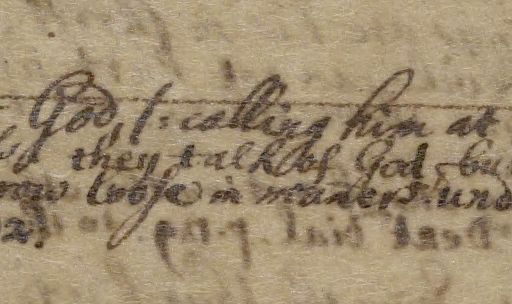 God, /: calling him at
they talk of God, bu
row loose in maners. und
2.